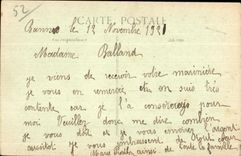 52
CARTE POSTALE
Bannes le 12 Novembre 1921
Madame Balland
je viens de recevoir votre
je vous en remercie et en suis très
contente car je l'ai pour
moi Veuillez donc me dire combien
je vous dois et je vous enverrai l'argent
aussitôt je vous embrasse de tout cœur
ainsi de toute la famille